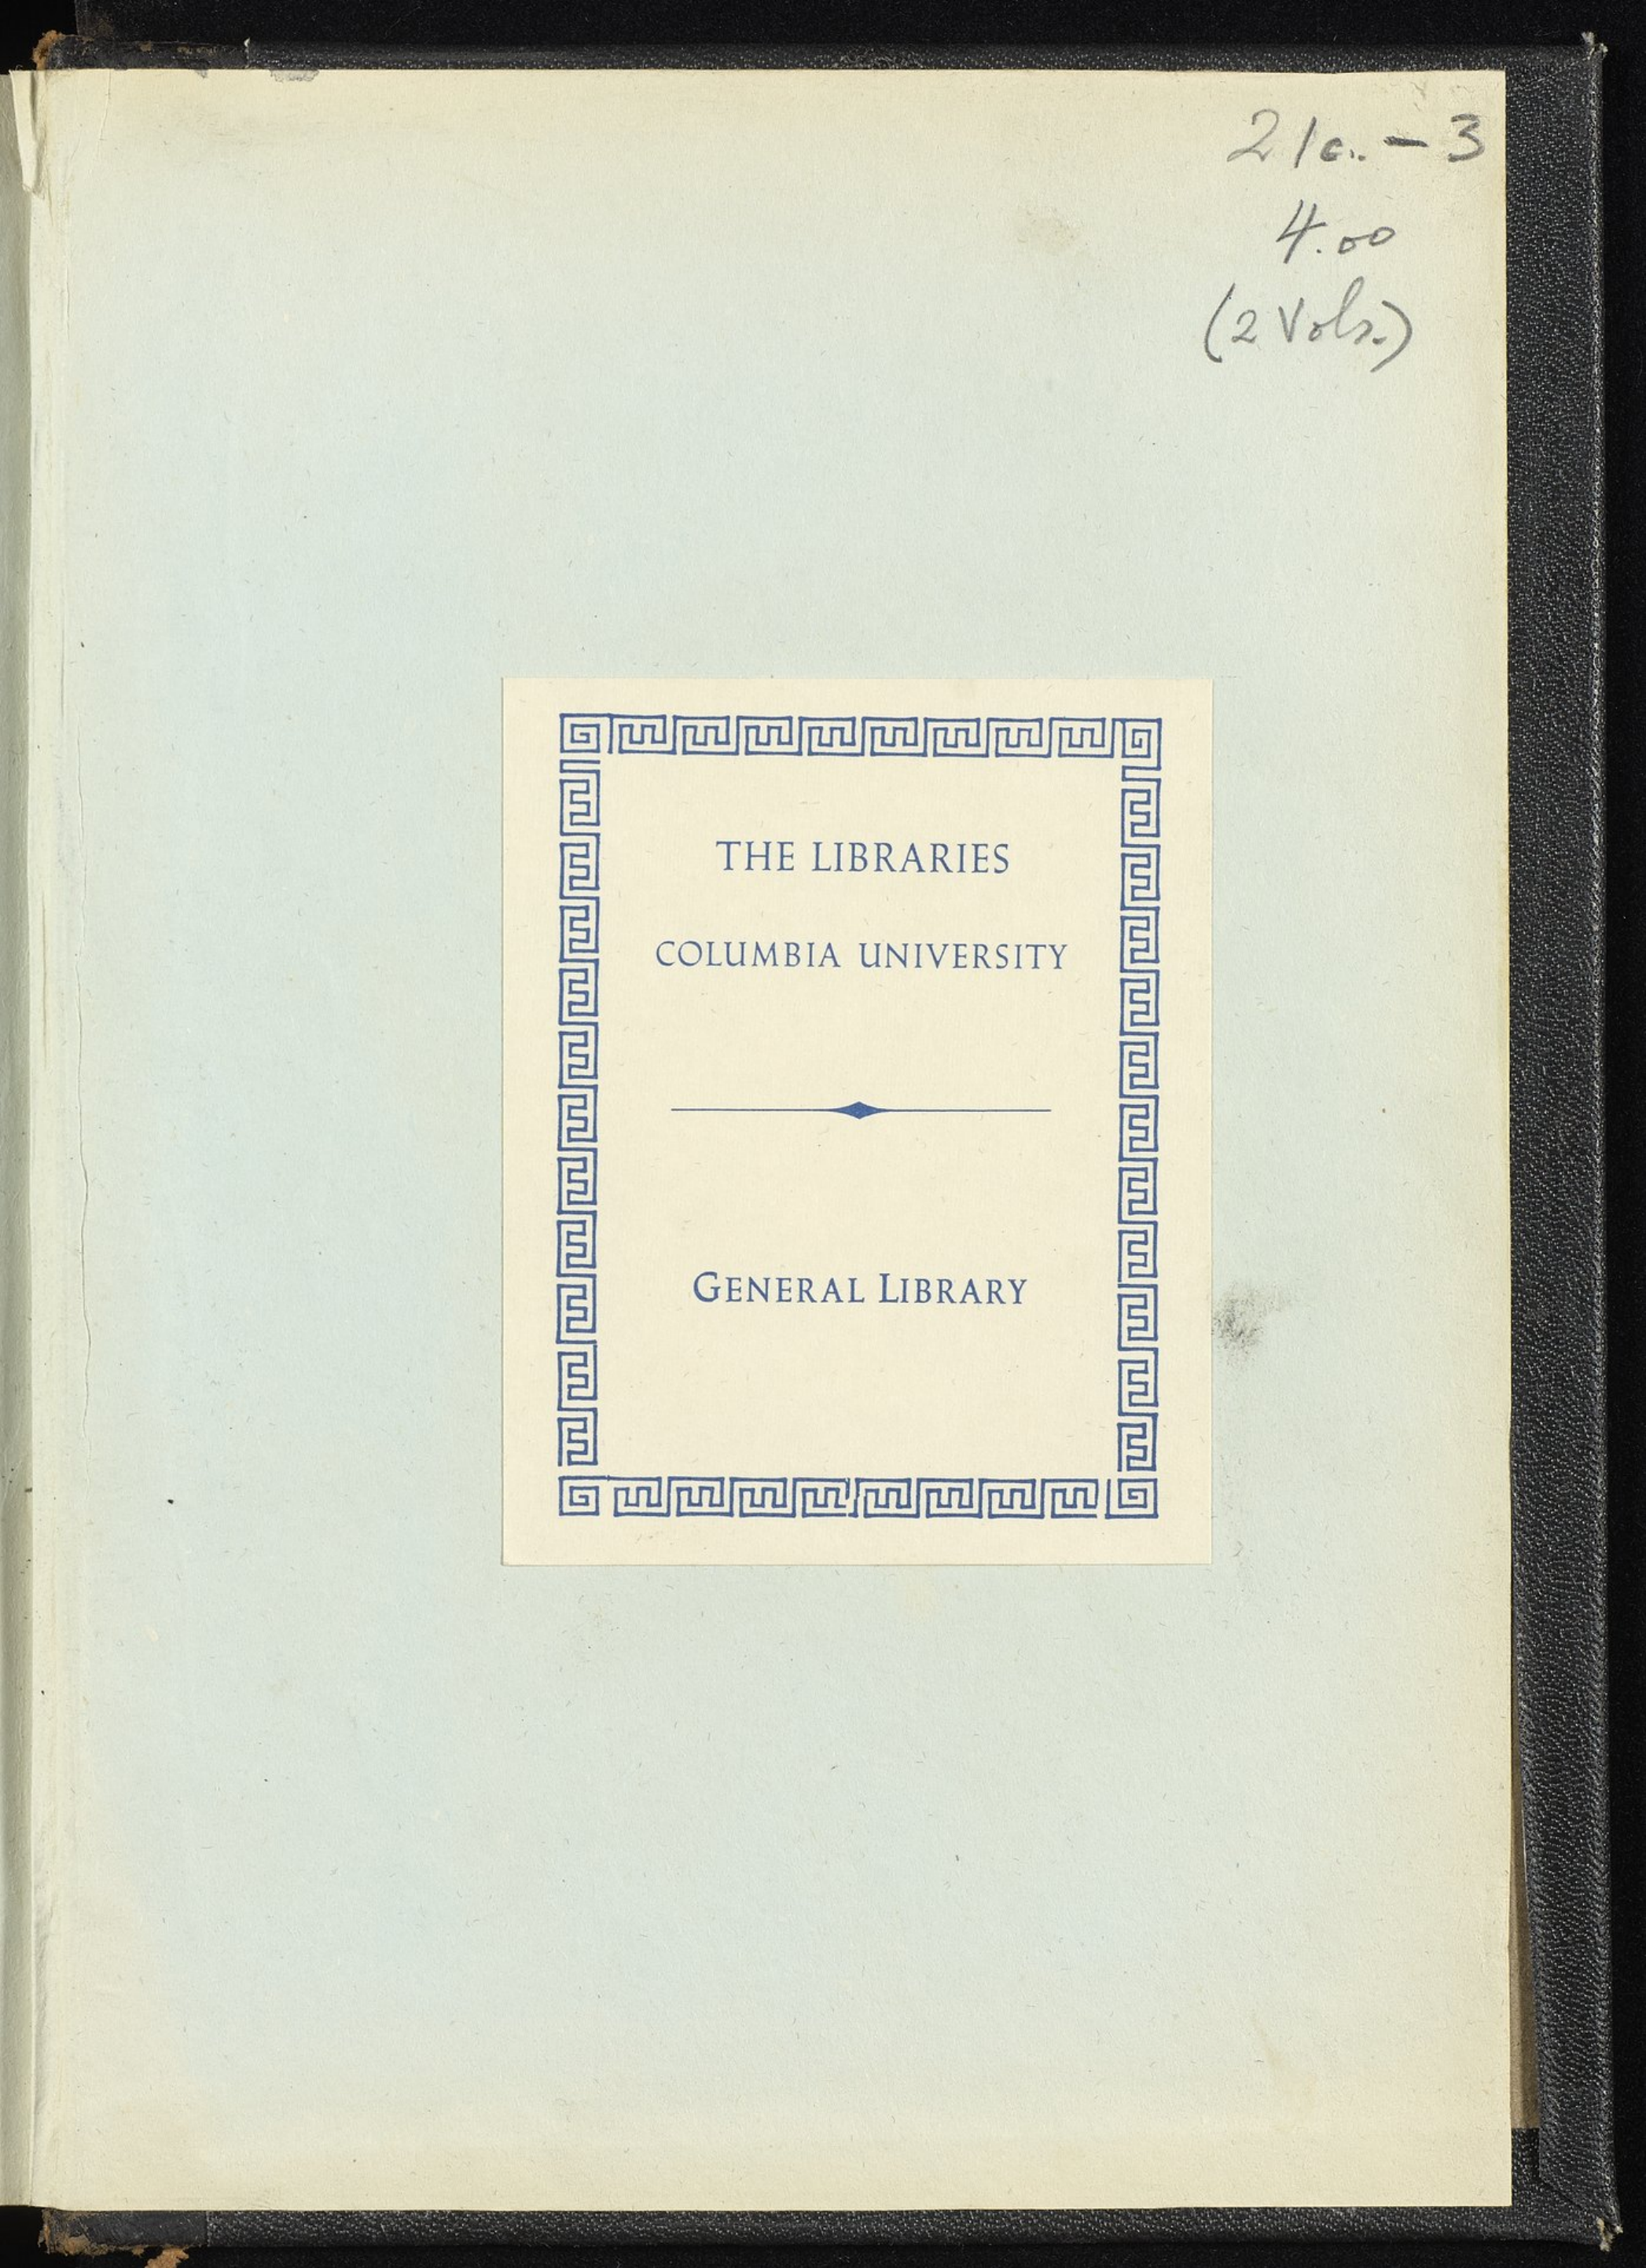 4.00
(2 Vols.)
THE LIBRARIES
COLUMBIA UNIVERSITY
GENERAL LIBRARY